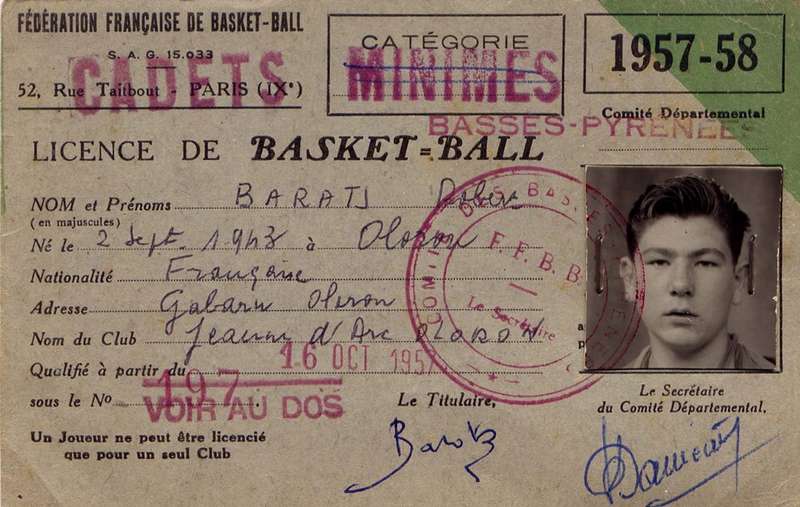 FÉDÉRATION FRANÇAISE DE BASKET-BALL
S. A. G. 15.033
CADETS
52, Rue Taitbout - PARIS (IXᵉ)
CATÉGORIE
MINIMES
1957-58
Comité Départemental
BASSES-PYRENEES
LICENCE DE BASKET-BALL
NOM et Prénoms BARATS Robert
(en majuscules)
Né le 2 Sept. 1943 à Oloron
Nationalité Française
Adresse Gabarn Oloron
Nom du Club Jeanne d'Arc OLORON
Qualifié à partir du 16 OCT 1957
sous le No 197
VOIR AU DOS
Un Joueur ne peut être licencié
que pour un seul Club
Le Titulaire,
Le Secrétaire
du Comité Départemental,
DES BASSES
F. F. B. B.
Le Secrétaire